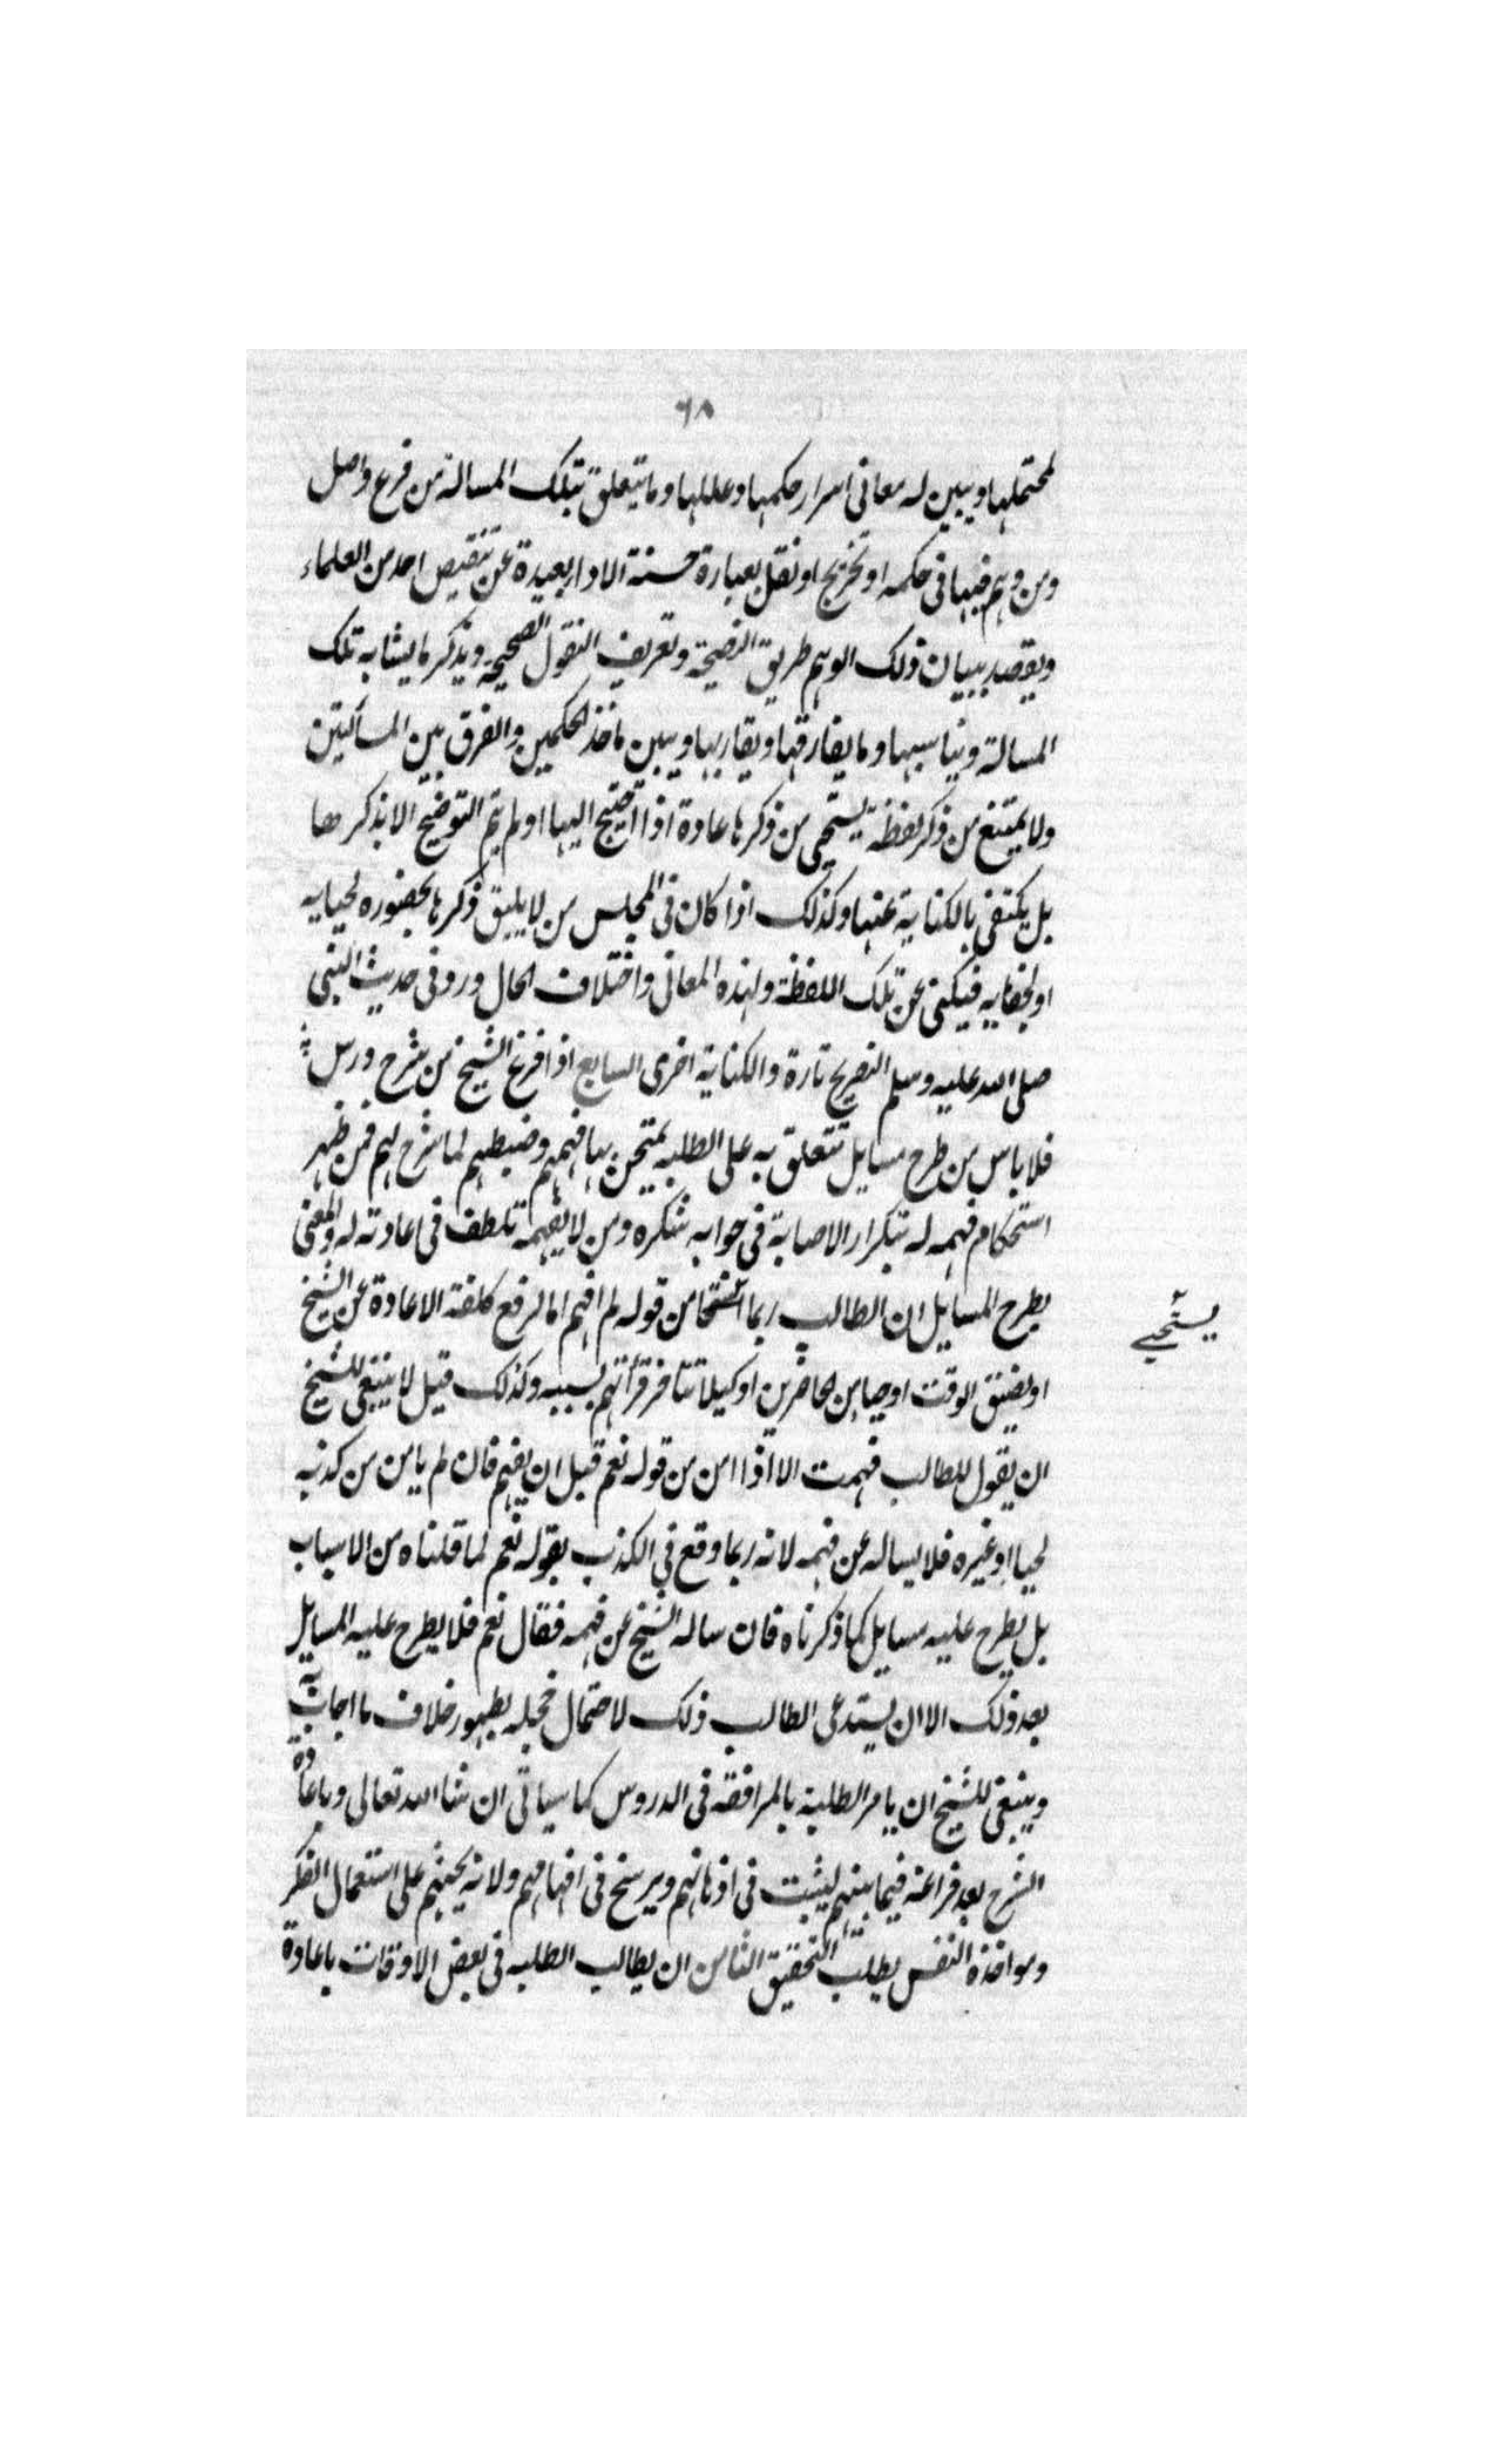 ٦٨
لمحتملها ويبين له معاني اسرار حكمها وعللها وما يتعلق بتلك المسالة من فرع واصل
ومن وهم فيها في حكمه او تخريج او نقل بعبارة حسنة الادا بعيدة عن تنقيص احد من العلماء
ويقصد ببيان ذلك الوهم طريق النصيحة وتعريف النقول الصحيحة ويذكر ما يشابه تلك
المسالة ويناسبها وما يفارقها ويقاربها ويبين ماخذ الحكمين والفرق بين المسألتين
ولا يمتنع من ذكر لفظة يستحي من ذكرها عادة اذا احتيج اليها او لم يتم التوضيح الا بذكرها
بل يكتفي بالكناية عنها وكذلك اذا كان في المجلس من لا يليق ذكرها بحضوره لحيايه
او لجفايه فيكني عن تلك اللفظة ولهذه المعاني واختلاف الحال ورد في حديث النبي
صلى الله عليه وسلم التصريح تارة والكناية اخرى السابع اذا فرغ الشيخ من شرح درس
فلا باس من طرح مسايل تتعلق به على الطلبه يمتحن بها فهمهم وضبطهم لما شرح لهم فمن ظهر
استحكام فهمه له بتكرار الاصابة في جوابه شكره ومن لا يفهمه تلطف في اعادته له والمعنى
بطرح المسايل ان الطالب ربما استحيا من قوله لم افهم اما لرفع كلفة الاعادة عن الشيخ
يستحيي
او لضيق الوقت او حيا من الحاضرين او كيلا تتاخر قرأتهم بسببه وكذلك قيل لا ينبغي للشيخ
ان يقول للطالب فهمت الا اذا امن من قوله نعم قبل ان يفهم فان لم يامن من كذبه
لحيا او غيره فلا يساله عن فهمه لانه ربما وقع في الكذب بقوله نعم لما قلناه من الاسباب
بل يطرح عليه مسايل كما ذكرناه فان ساله الشيخ عن فهمه فقال نعم فلا يطرح عليه المسايل
بعد ذلك الا ان يستدعى الطالب ذلك لاحتمال خجله بظهور خلاف ما اجاب به
وينبغي للشيخ ان يامر الطلبة بالمرافقة في الدروس كما سياتي ان شا الله تعالى وباعادة
الشرح بعد فراغه فيما بينهم ليثبت في اذهانهم ويرسخ في افهامهم ولانه يحثهم على استعمال الفكر
ومواخذة النفس بطلب التحقيق الثامن ان يطالب الطلبه في بعض الاوقات باعادة